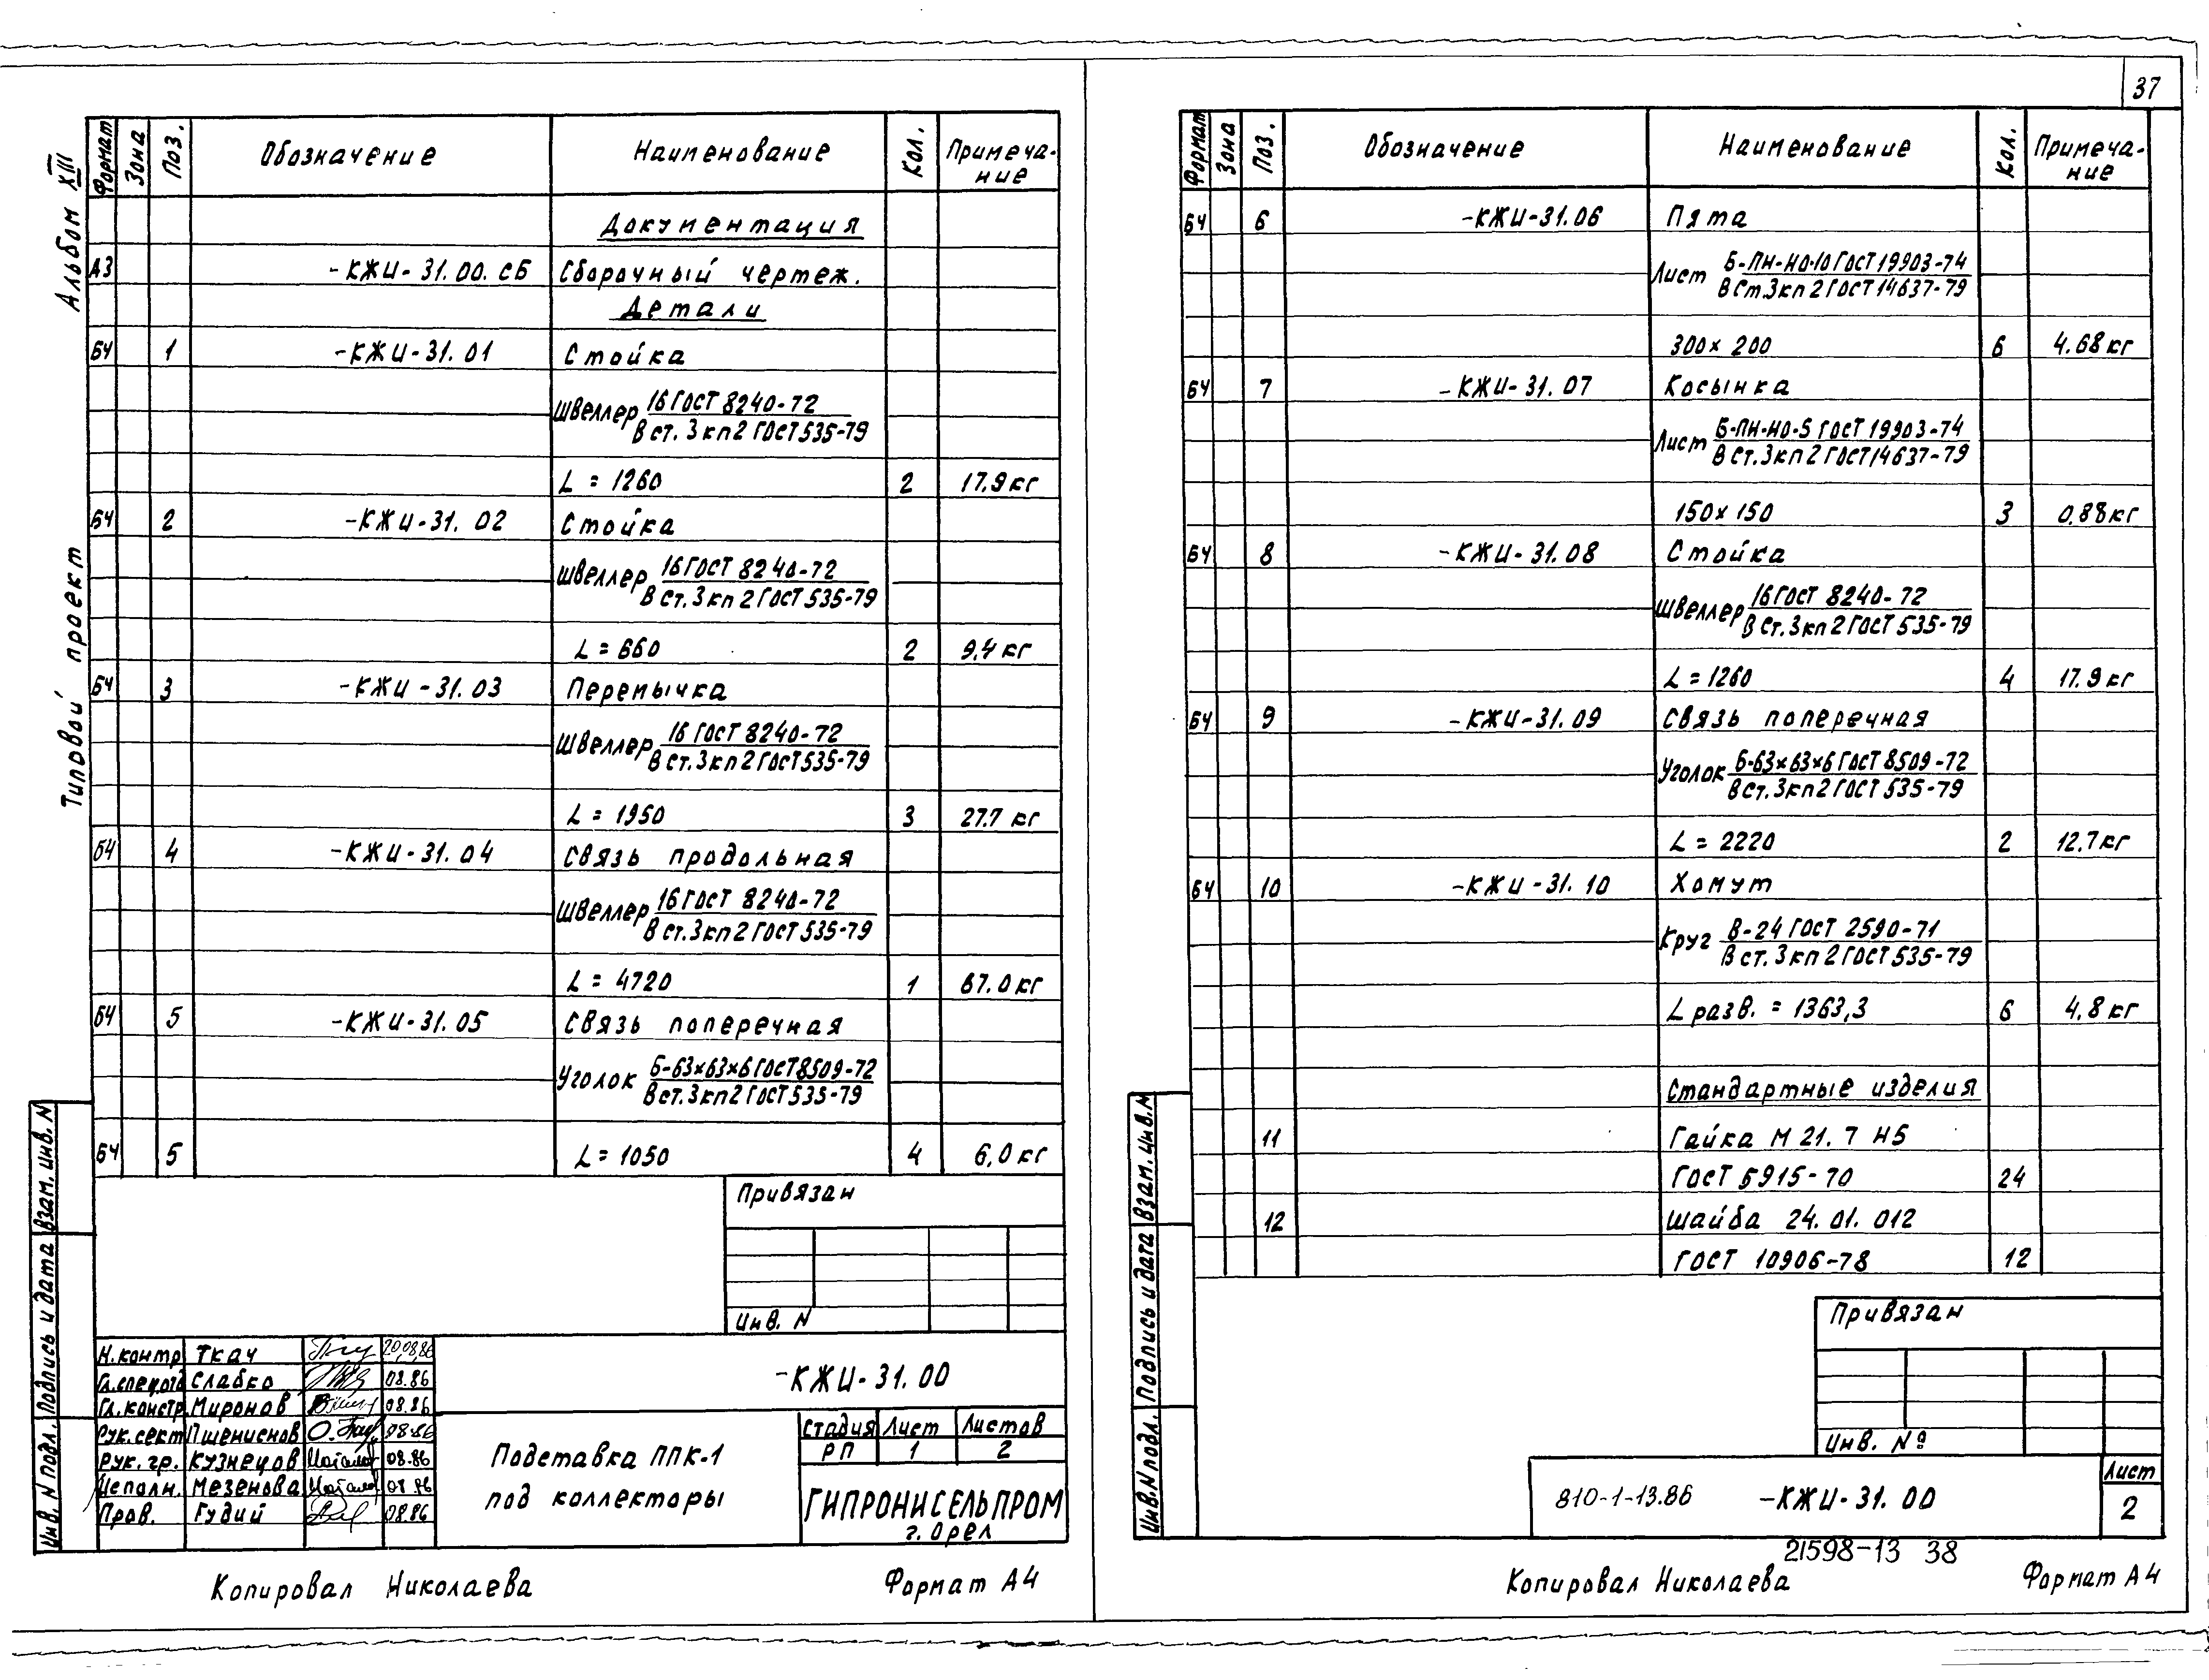 37
Альбом XIII
Типовой проект
Формат Зона Поз. Обозначение Наименование Кол. Примеча-
ние
Документация
А3 -КЖИ-31.00.СБ Сборочный чертеж.
Детали
БЧ 1 -КЖИ-31.01 Стойка
Швеллер 16 ГОСТ 8240-72
В ст. 3 кп 2 ГОСТ 535-79
L = 1260 2 17.9 кг
БЧ 2 -КЖИ-31.02 Стойка
Швеллер 16 ГОСТ 8240-72
В ст. 3 кп 2 ГОСТ 535-79
L = 660 2 9.4 кг
БЧ 3 -КЖИ-31.03 Перемычка
Швеллер 16 ГОСТ 8240-72
В ст. 3 кп 2 ГОСТ 535-79
L = 1950 3 27.7 кг
БЧ 4 -КЖИ-31.04 Связь продольная
Швеллер 16 ГОСТ 8240-72
В ст. 3 кп 2 ГОСТ 535-79
L = 4720 1 67.0 кг
БЧ 5 -КЖИ-31.05 Связь поперечная
Уголок Б-63×63×6 ГОСТ 8509-72
В ст. 3 кп 2 ГОСТ 535-79
БЧ 5 L = 1050 4 6,0 кг
Привязан
Инв. N
Взам. инв. N
Подпись и дата
Инв. N подл.
Н.контр Ткач 20.08.86
Гл.спец.ото Слабко 08.86
Гл.констр. Миронов 08.86
Рук.сект Пшениснов 08.86
Рук. гр. Кузнецов 08.86
Исполн. Мезенова 08.86
Пров. Гудий 08.86
-КЖИ-31.00
Подставка ППК-1
под коллекторы
Стадия Лист Листов
РП 1 2
ГИПРОНИСЕЛЬПРОМ
г. Орел
Копировал Николаева Формат А4
Формат Зона Поз. Обозначение Наименование Кол. Примеча-
ние
БЧ 6 -КЖИ-31.06 Пята
Лист Б-ПН-НО-10 ГОСТ 19903-74
В Ст.3 кп 2 ГОСТ 14637-79
300×200 6 4.68 кг
БЧ 7 -КЖИ-31.07 Косынка
Лист Б-ПН-НО-5 ГОСТ 19903-74
В Ст.3 кп 2 ГОСТ 14637-79
150×150 3 0.88 кг
БЧ 8 -КЖИ-31.08 Стойка
Швеллер 16 ГОСТ 8240-72
В Ст.3 кп 2 ГОСТ 535-79
L = 1260 4 17.9 кг
БЧ 9 -КЖИ-31.09 Связь поперечная
Уголок Б-63×63×6 ГОСТ 8509-72
В Ст. 3 кп 2 ГОСТ 535-79
L = 2220 2 12.7 кг
БЧ 10 -КЖИ-31.10 Хомут
Круг В-24 ГОСТ 2590-71
В ст. 3 кп 2 ГОСТ 535-79
L разв. = 1363,3 6 4,8 кг
Стандартные изделия
11 Гайка М 21.7 Н5
ГОСТ 5915-70 24
12 Шайба 24.01.012
ГОСТ 10906-78 12
Привязан
Инв. №
Взам. инв. N
Подпись и дата
Инв. N подл.
810-1-13.86 -КЖИ-31.00
Лист
2
21598-13 38
Копировал Николаева Формат А4